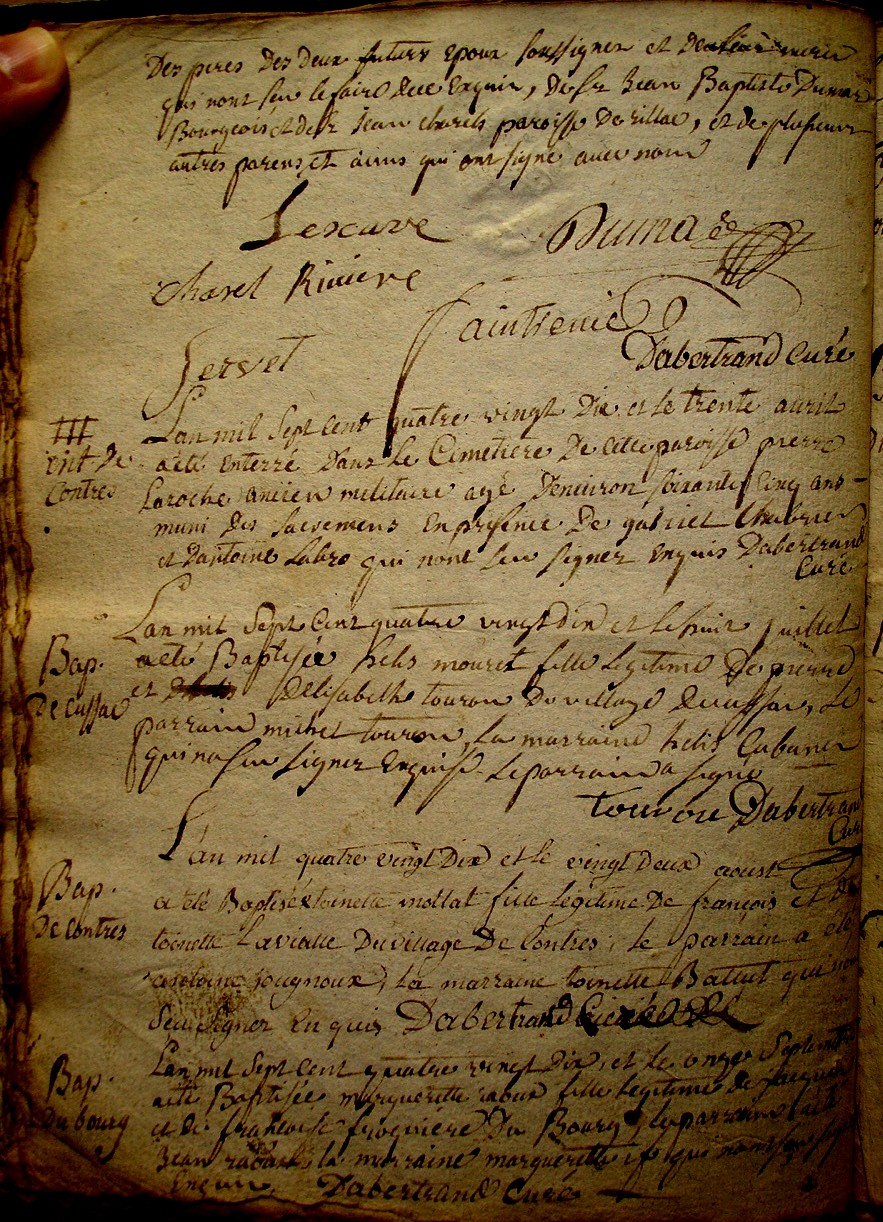 Des peres des deux futurs epoux soussignes et de leur mere
qui nont seu le faire de ce Enquis, de Sr Jean Baptiste Dumas
Bourgeois et de Sr Jean Charels paroisse Dorillac, et de plusieurs
autres parens et amis qui ont signé avec nous
Lescure Dumas
Charel Riviere
Saintrenie
Servet Dabertrand curé
Lan mil Sept cent quatre vingt Dix et le trente avril
ent de
Contres
a été enterré Dans le Cimetiere De cette paroisse pierre
Laroche ancien militaire agé Denviron soixante cinq ans
muni des sacremens en presence De gabriel Chabrier
et Dantoine Labro qui nont seu signer enquis Dabertrand
Curé
Lan mil Sept Cent quatre vingt dix et le huit juillet
Bap.
De Cussac
a été Baptisée helis mouret fille legitime De pierre
et Delisabeth touron du village de Cussac, le
parrain michel touron, la marraine helis Cabanes
qui na seu signer Enquise le parrain a signé
touron Dabertrand
Curé
L'an mil quatre vingt Dix et le vingt Deux aoust
Bap.
De Contres
a été Baptisée toinette mollat fille legitime De françois et De
toinette Laviale Du village De Contres, le parrain a été
antoine jougnoux, la marraine toinette Batut qui nont
seu signer enquis Dabertrand Curé
Lan mil Sept Cent quatre vingt Dix, et le onze Septembre
Bap.
Du bourg
a été Baptisée marguerite fille legitime de jacques
et de françoise Du Bourg, le parrain a été
Jean la marraine marguerite qui nont seu signer
Enquis. Dabertrand Curé